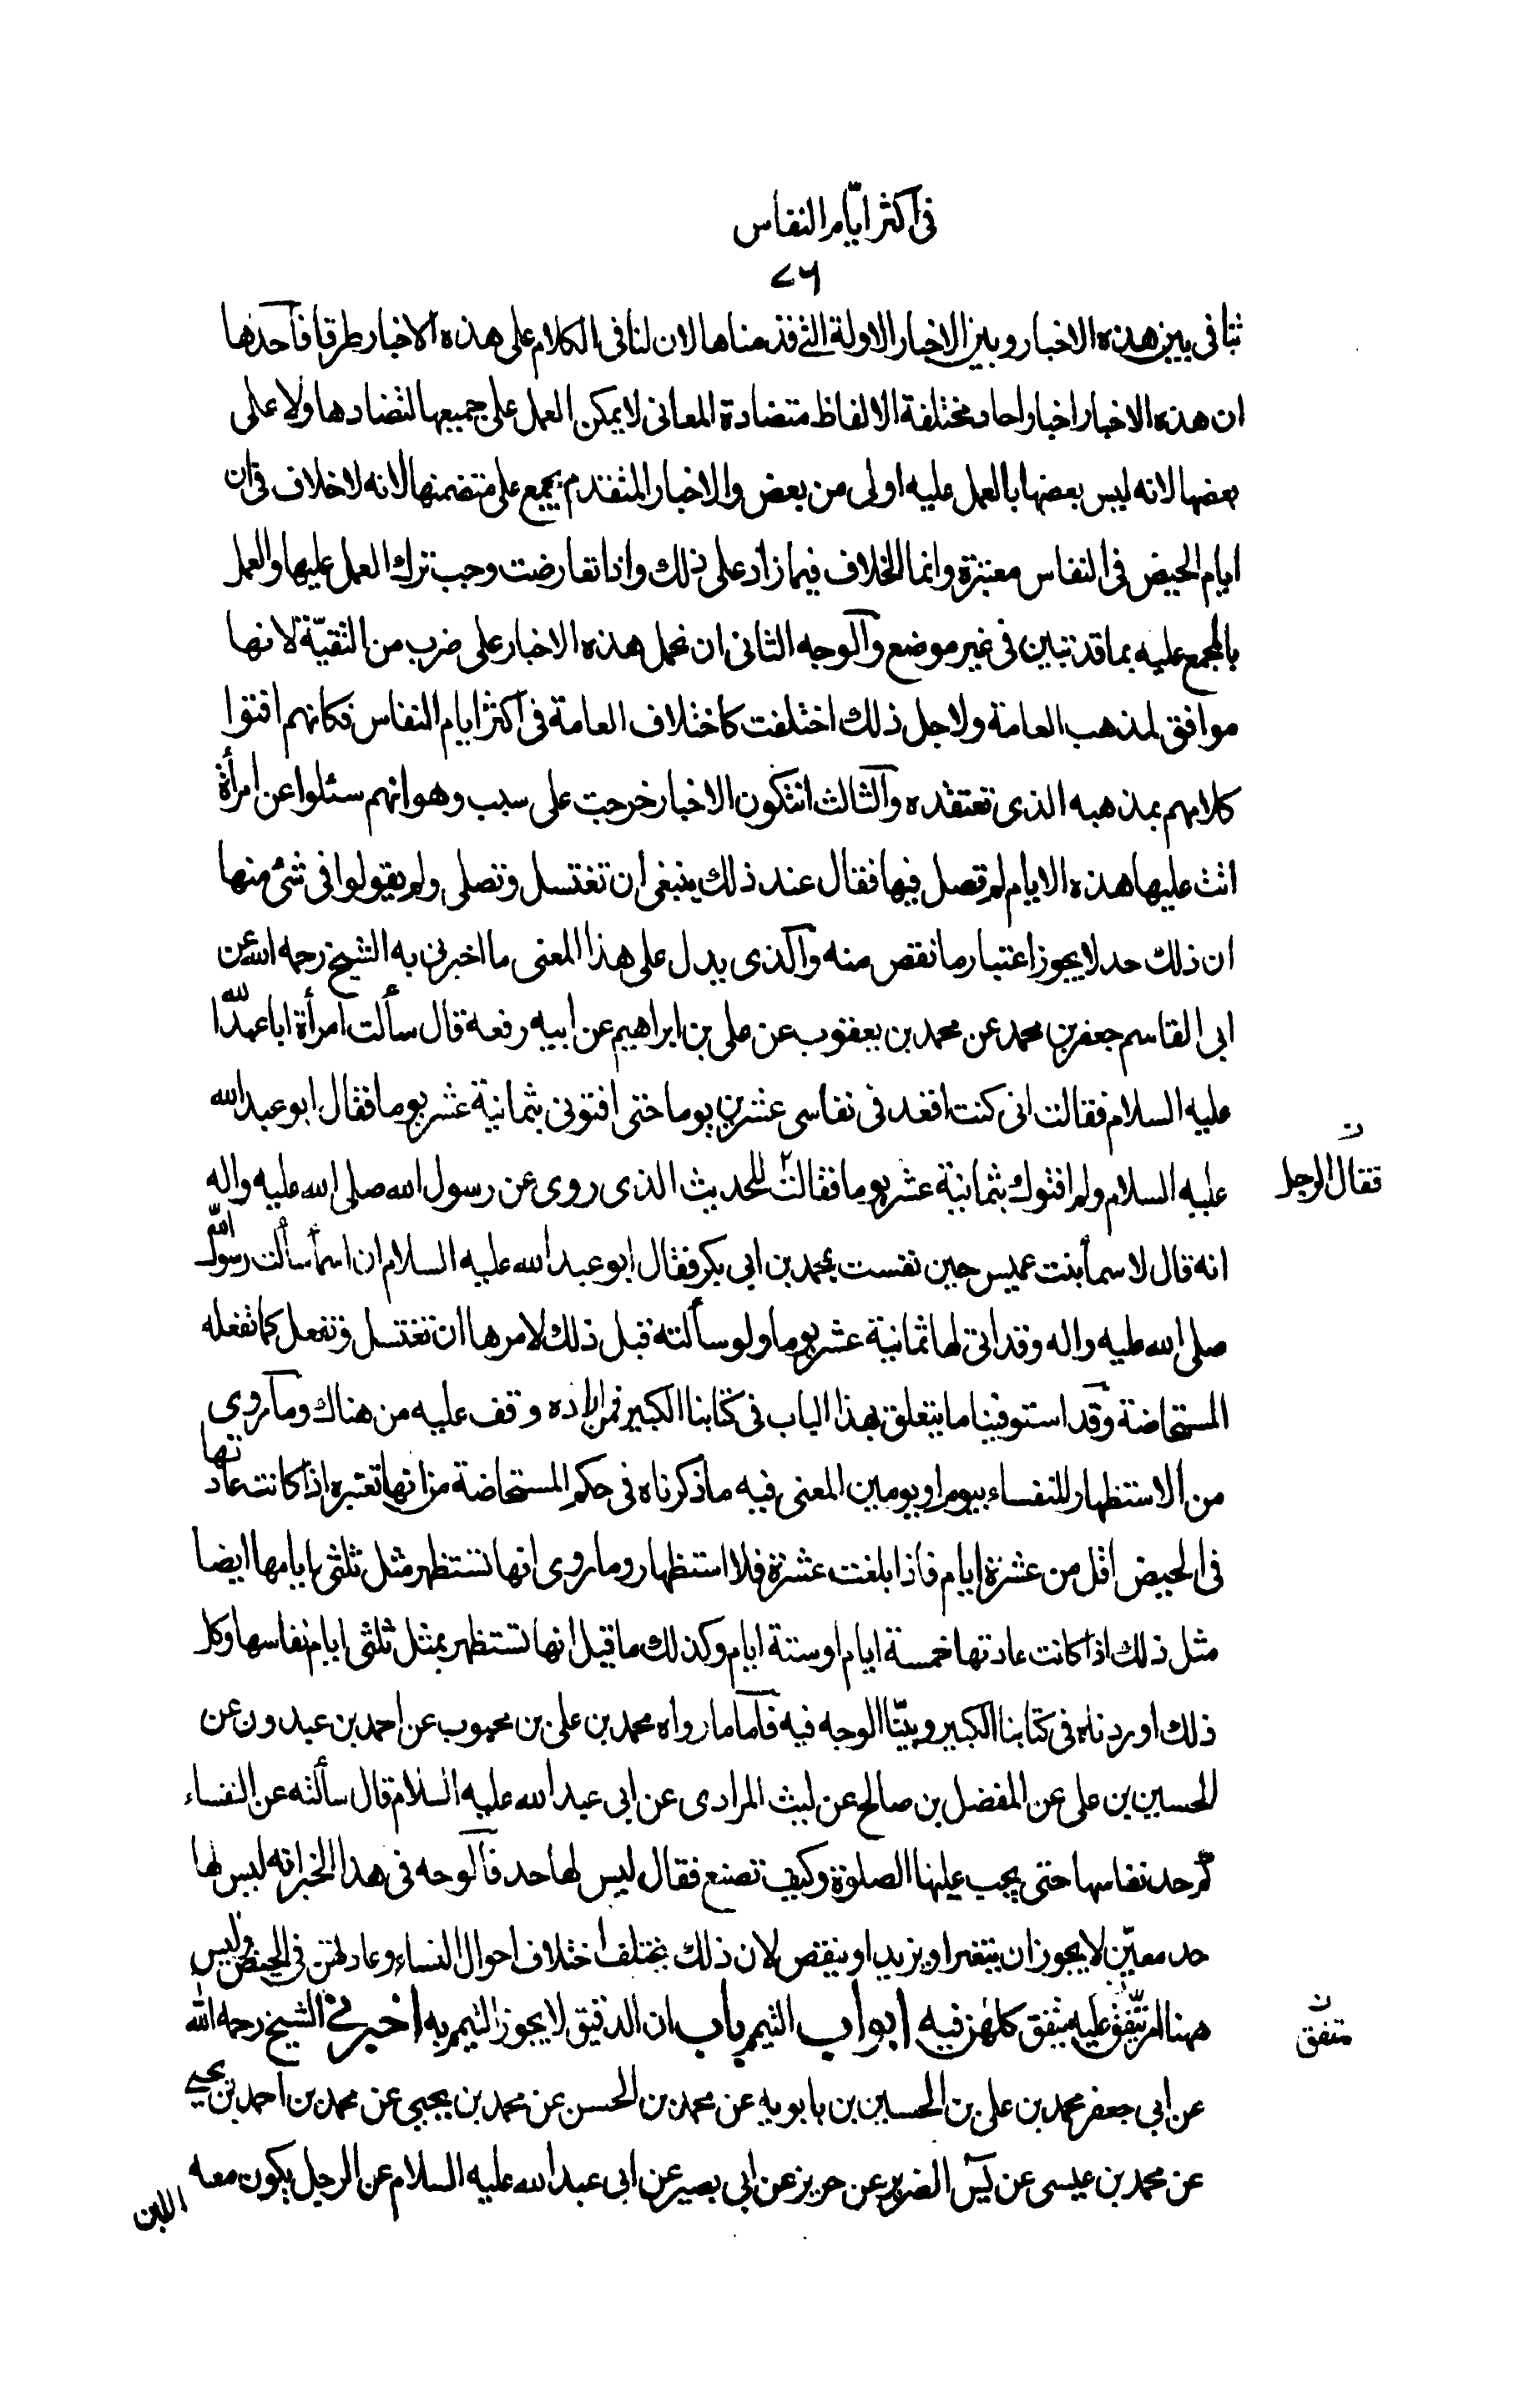 فى اكثر ايّام النفاس
٧٦
تنافى بين هذه الاخبار وبين الاخبار الاولة التى قدمناها لان لنا فى الكلام على هذه الاخبار طرقا فاحدها
ان هذه الاخبار اخبار احاد مختلفة الالفاظ متضادة المعانى لا يمكن العمل على جميعها لتضادها ولا على
بعضها لانه ليس بعضها بالعمل عليه اولى من بعض والاخبار المتقدم يجمع على متضمنها لانه لا خلاف فى ان
ايام الحيض فى النفاس معتبرة وانما الخلاف فيما زاد على ذلك واذا تعارضت وجب ترك العمل عليها والعمل
بالمجمع عليه بما قد تبين فى غير موضع والوجه الثانى ان نحمل هذه الاخبار على ضرب من التقيّة لانها
موافق لمذهب العامة ولاجل ذلك اختلفت كاختلاف العامة فى اكثر ايام النفاس فكانهم افتوا
كلامهم بمذهبه الذى تعتقده والثالث ان تكون الاخبار خرجت على سبب وهو انهم سئلوا عن امرأة
اتت عليها هذه الايام لم تصل فيها فقال عند ذلك ينبغى ان تغتسل وتصلى ولم يقولوا فى شئ منها
ان ذلك حد لا يجوز اعتبار ما نقص منه والذى يدل على هذا المعنى ما اخبرنى به الشيخ رحمه الله عن
ابى القاسم جعفر بن محمد عن محمد بن يعقوب عن على بن ابراهيم عن ابيه رفعه قال سألت امرأة ابا عبد الله
عليه السلام فقالت انى كنت اقعد فى نفاسى عشرين يوما حتى افتونى بثمانية عشر يوما فقال ابو عبد الله
عليه السلام ولم افتوك بثمانية عشر يوما فقالت للحديث الذى روى عن رسول الله صلى الله عليه واله
ن
فقال الرجل
انه قال لاسمأ بنت عميس حين نفست بمحمد بن ابى بكر فقال ابو عبد الله عليه السلام ان اسمأ سألت رسول الله
صلى الله عليه واله وقد اتى لها ثمانية عشر يوما ولو سألته قبل ذلك لامرها ان تغتسل وتفعل كما تفعله
المستحاضة وقد استوفينا ما يتعلق بهذا الباب فى كتابنا الكبير فمن اراده وقف عليه من هناك وما روى
من الاستظهار للنفساء بيوم او يومين المعنى فيه ما ذكرناه فى حكم المستحاضة من انها تعتبره اذا كانت عادتها
فى الحيض اقل من عشرة ايام فاذا بلغت عشرة فلا استظهار وما روى انها تستظهر مثل ثلثى ايامها ايضا
مثل ذلك اذا كانت عادتها خمسة ايام او ستة ايام وكذلك ما قيل انها تستظهر بمثل ثلثى ايام نفاسها وكل
ذلك اوردناه فى كتابنا الكبير وبيّنا الوجه فيه فاما ما رواه محمد بن على بن محبوب عن احمد بن عبدون عن
الحسين بن على عن المفضل بن صالح عن ليث المرادى عن ابى عبد الله عليه السلام قال سألته عن النفساء
كم حد نفاسها حتى يجب عليها الصلوة وكيف تصنع فقال ليس لها حد فالوجه فى هذا الخبر انه ليس لها
حد معيّن لا يجوز ان يتغير او يزيد او ينقص لان ذلك يختلف اختلاف احوال النساء وعادتهن فى الحيض وليس
ههنا امر يتّفق عليه يتفق كلهن فيه ابواب التيمم باب ان الدقيق لا يجوز التيمم به اخبرنى الشيخ رحمه الله
ن
متفق
عن ابى جعفر محمد بن على بن الحسين بن بابويه عن محمد بن الحسن عن محمد بن يحيى عن محمد بن احمد بن يحيى
عن محمد بن عيسى عن يس الضرير عن حريز عن ابى بصير عن ابى عبد الله عليه السلام عن الرجل يكون معه
اللبن